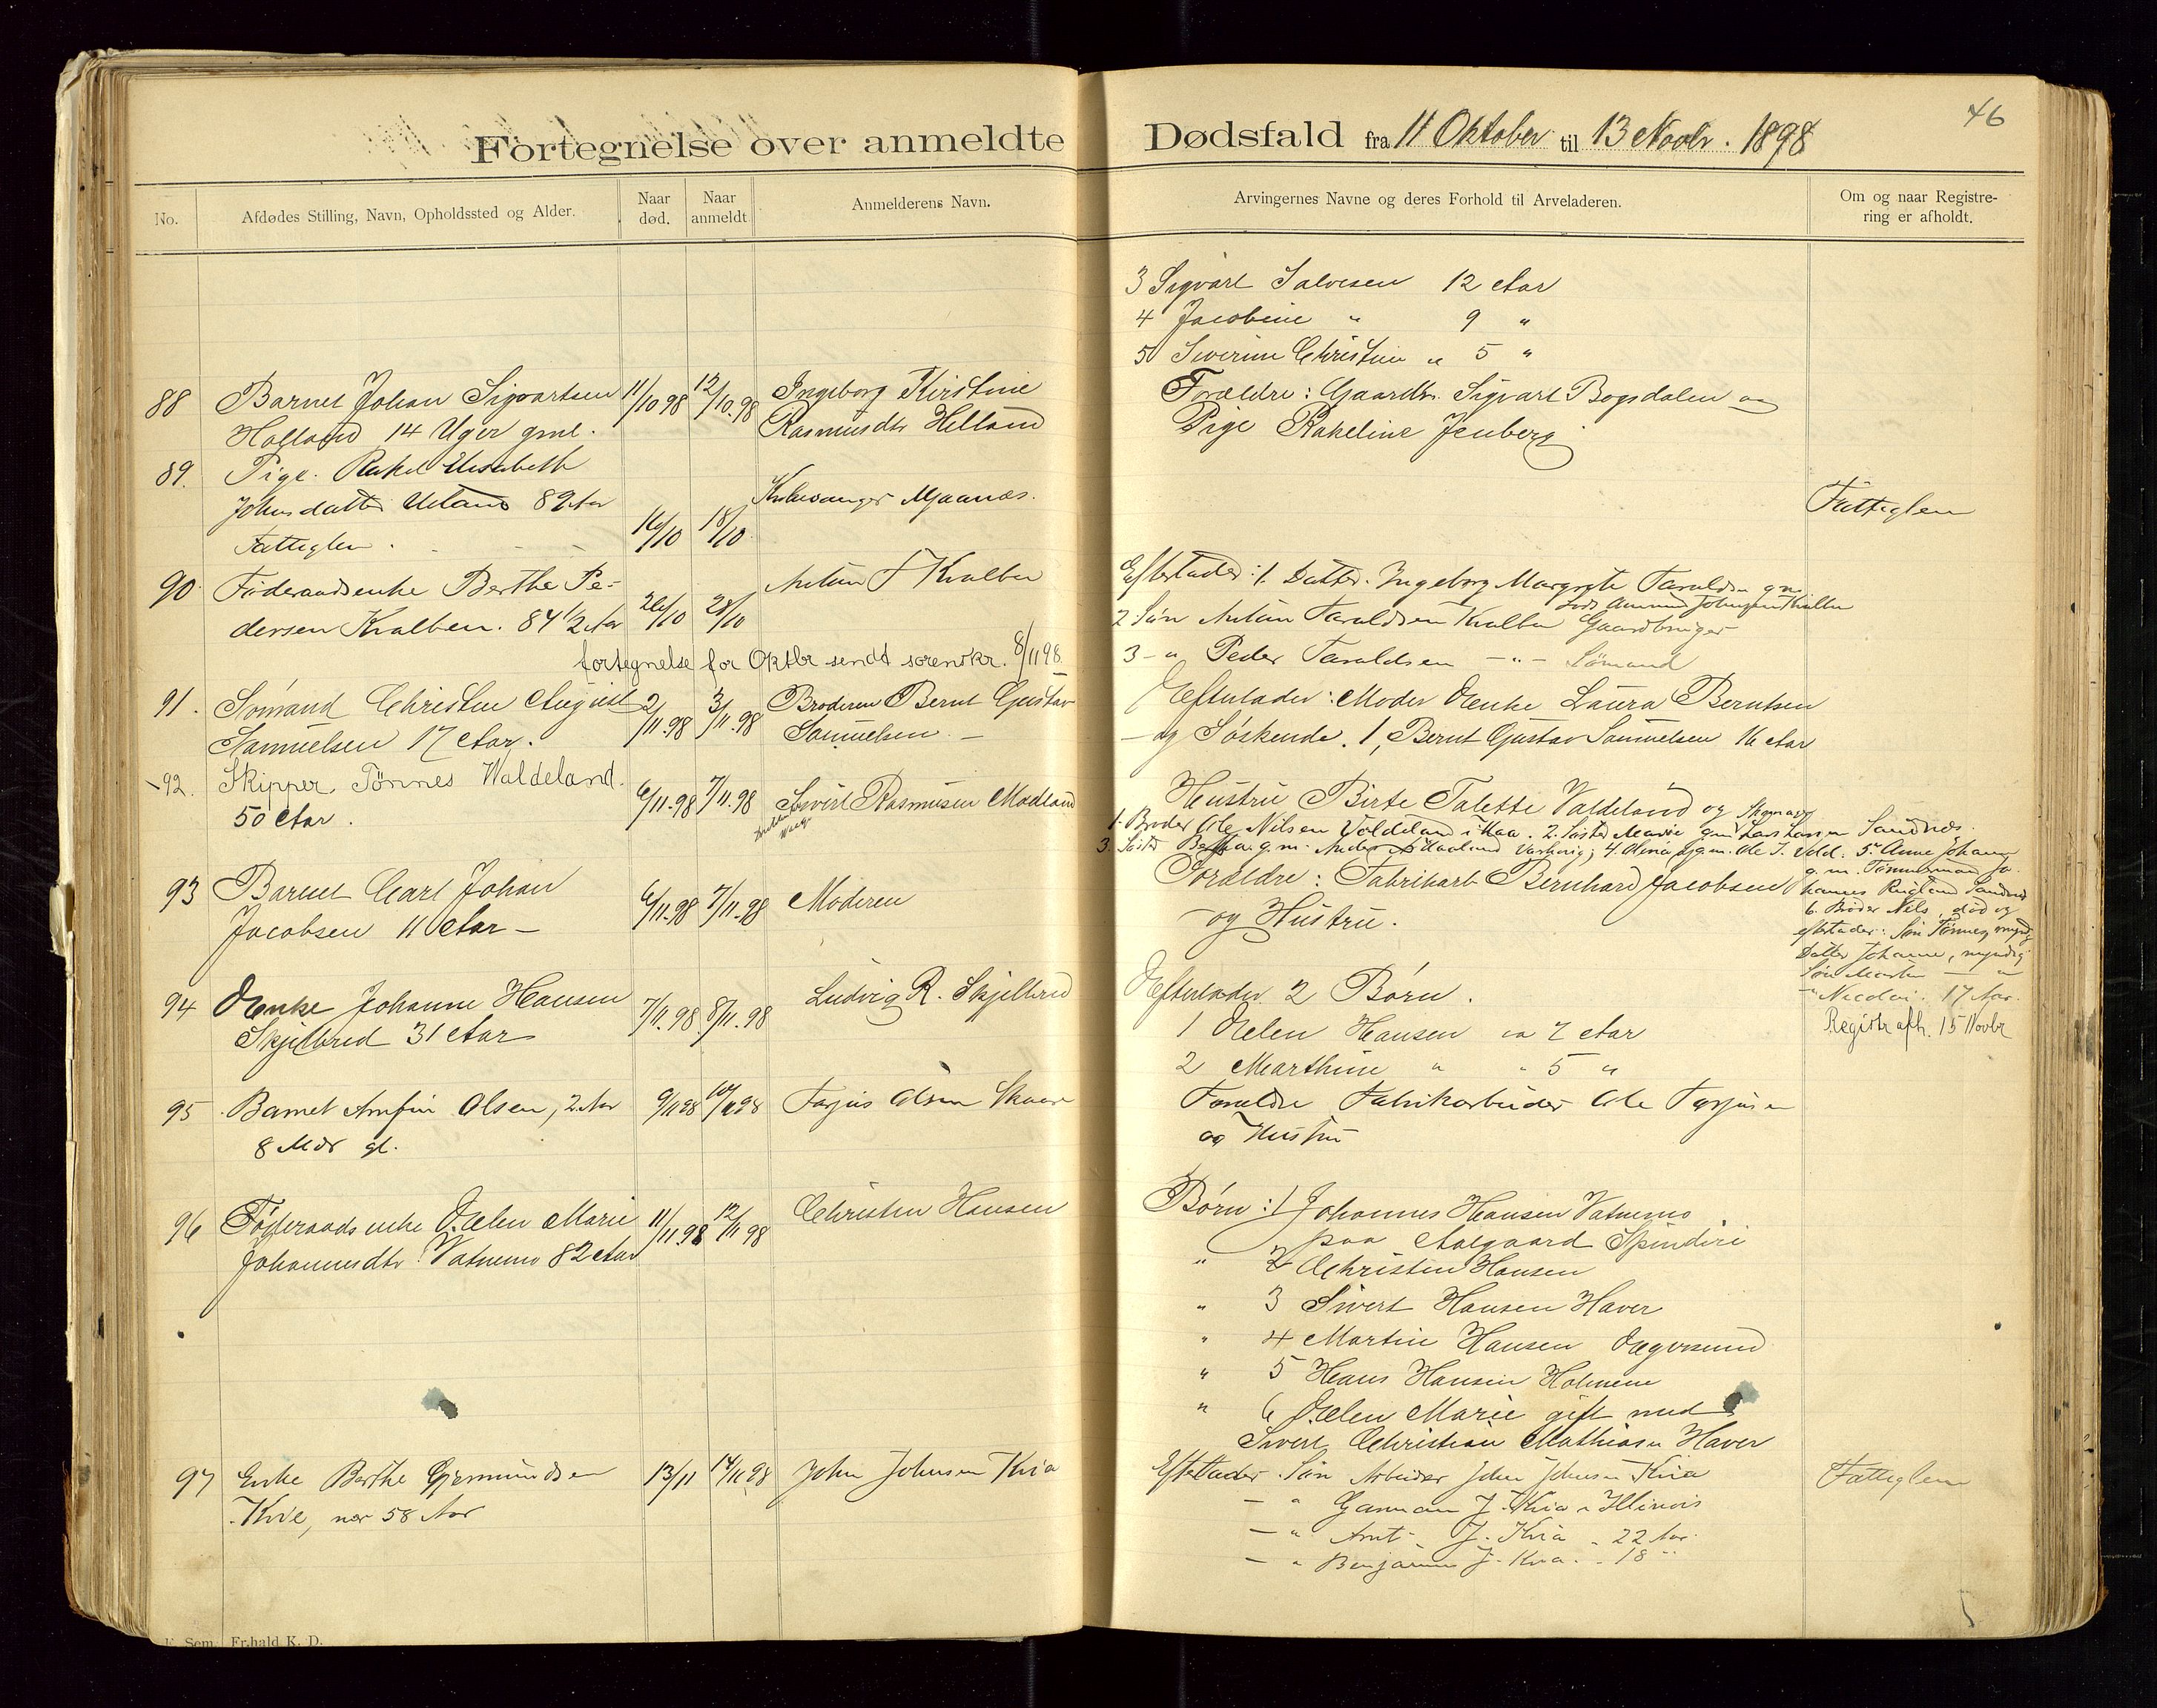 46
Fortegnelse over anmeldte Dødsfald fra 11 Oktober til 13 Novbr. 1898
No.
Afdødes Stilling, Navn, Opholdssted og Alder.
Naar død.
Naar anmeldt
Anmelderens Navn.
Arvingernes Navne og deres Forhold til Arveladeren.
Om og naar Registre-
ring er afholdt.
3 Sigvart Salvesen 12 Aar
4 Jacobine " 9 "
5 Severine Christine " 5 "
88 Barnet Johan Sigvartsen 11/10 98 12/10.98 Ingeborg Kirstine
Holland 14 Uger gml. Rasmusdtr Helland
Forældre: Gaardbr. Sigvart Bogsdalen og
Pige Rakeline Jenberg
89. Pige. Rakel Elisabeth
Johnsdatter Ueland 82 Aar
Fatteglem. 16/10 18/10
Maanæs.
Fatteglem
90. Føderaadsenke Berthe Pe-
dersen Kvalben. 84 1/2 Aar 26/10 28/10 Anton T Kvalben
Efterlader: 1. Datter. Ingeborg Margrete Taraldsen gm.
2 Søn Anton Taraldsen Kvalben Gaardbruger
3 - " Peder Taraldsen - " - Sømand
fortegnelse for Oktbr sendt sorenskr. 8/11 98.
91. Sømand Christen August 2/11.98 3/11.98 Broderen Bernt Gustav
Samuelsen 17 Aar. Samuelsen -
Efterlader: Moder Enke Laura Berntsen
og Søskende. 1, Bernt Gustav Samuelsen 16 Aar
92. Skipper Tønnes Waldeland. 6/11.98 7/11.98 Sivert Rasmusen Modland
50 Aar.
Hustru Birte Talette Valdeland og
1. Broder Ole Nilsen Valdeland i Haa. 2. Søster Marie gm Lars Larsen Sandnæs.
3. Søster Bertha g.m. 5. Anne Johanne
g.m. Tømmermand Jo-
hannes Sandnæs
6. Broder Nils, død og
efterlader: Søn Tønnes, myndig
Datter Johanne, myndig
Søn Martin — "
— " Nicolai. 17 Aar.
Registr afh. 15 Novbr
93 Barnet Carl Johan 6/11.98 7/11.98 Moderen
Jacobsen 11 Aar -
Forældre: Fabrikarb Bernhard Jacobsen
- og Hustru.
94 Enke Johanne Hansen 7/11.98 8/11.98 Ludvig R. Skjelbred
Skjelbred 31 Aar
Efterlader 2 Børn.
1 Elen Hansen ca 7 Aar
2 Marthine " " 5 "
95 Barnet Arnfin Olsen, 2 Aar 9/11 98 10/11 98 Tarjus Olsen
8 Mdr gl.
Forældre Fabrikarbeider Ole Tarjusen
og Hustru
96 Føderaadsenke Elen Marie 11/11 98 12/11 98 Christen Hansen
Johannesdtr Vatnemo 82 Aar
Børn: 1 Johannes Hansen Vatnemo
paa Aalgaard Spinderi
" 2 Christen Hansen
" 3 Sivert Hansen Haver
" 4 Martin Hansen Egersund
" 5 Hans Hansen Holmene
" 6 Elen Marie gift med
Sivert Christian Mathiasen Haver
97 Enke Berthe Gjermundsen 13/11 14/11 98 John Johnsen Kvia
Kvie, nær 58 Aar
Efterlader Søn Arbeider John Johnsen Kvia
— " J. Kvia i Illinois
— " Arnt J. Kvia " 22 Aar.
— " Benjamin J. Kvia. " 18 "
Fatteglem